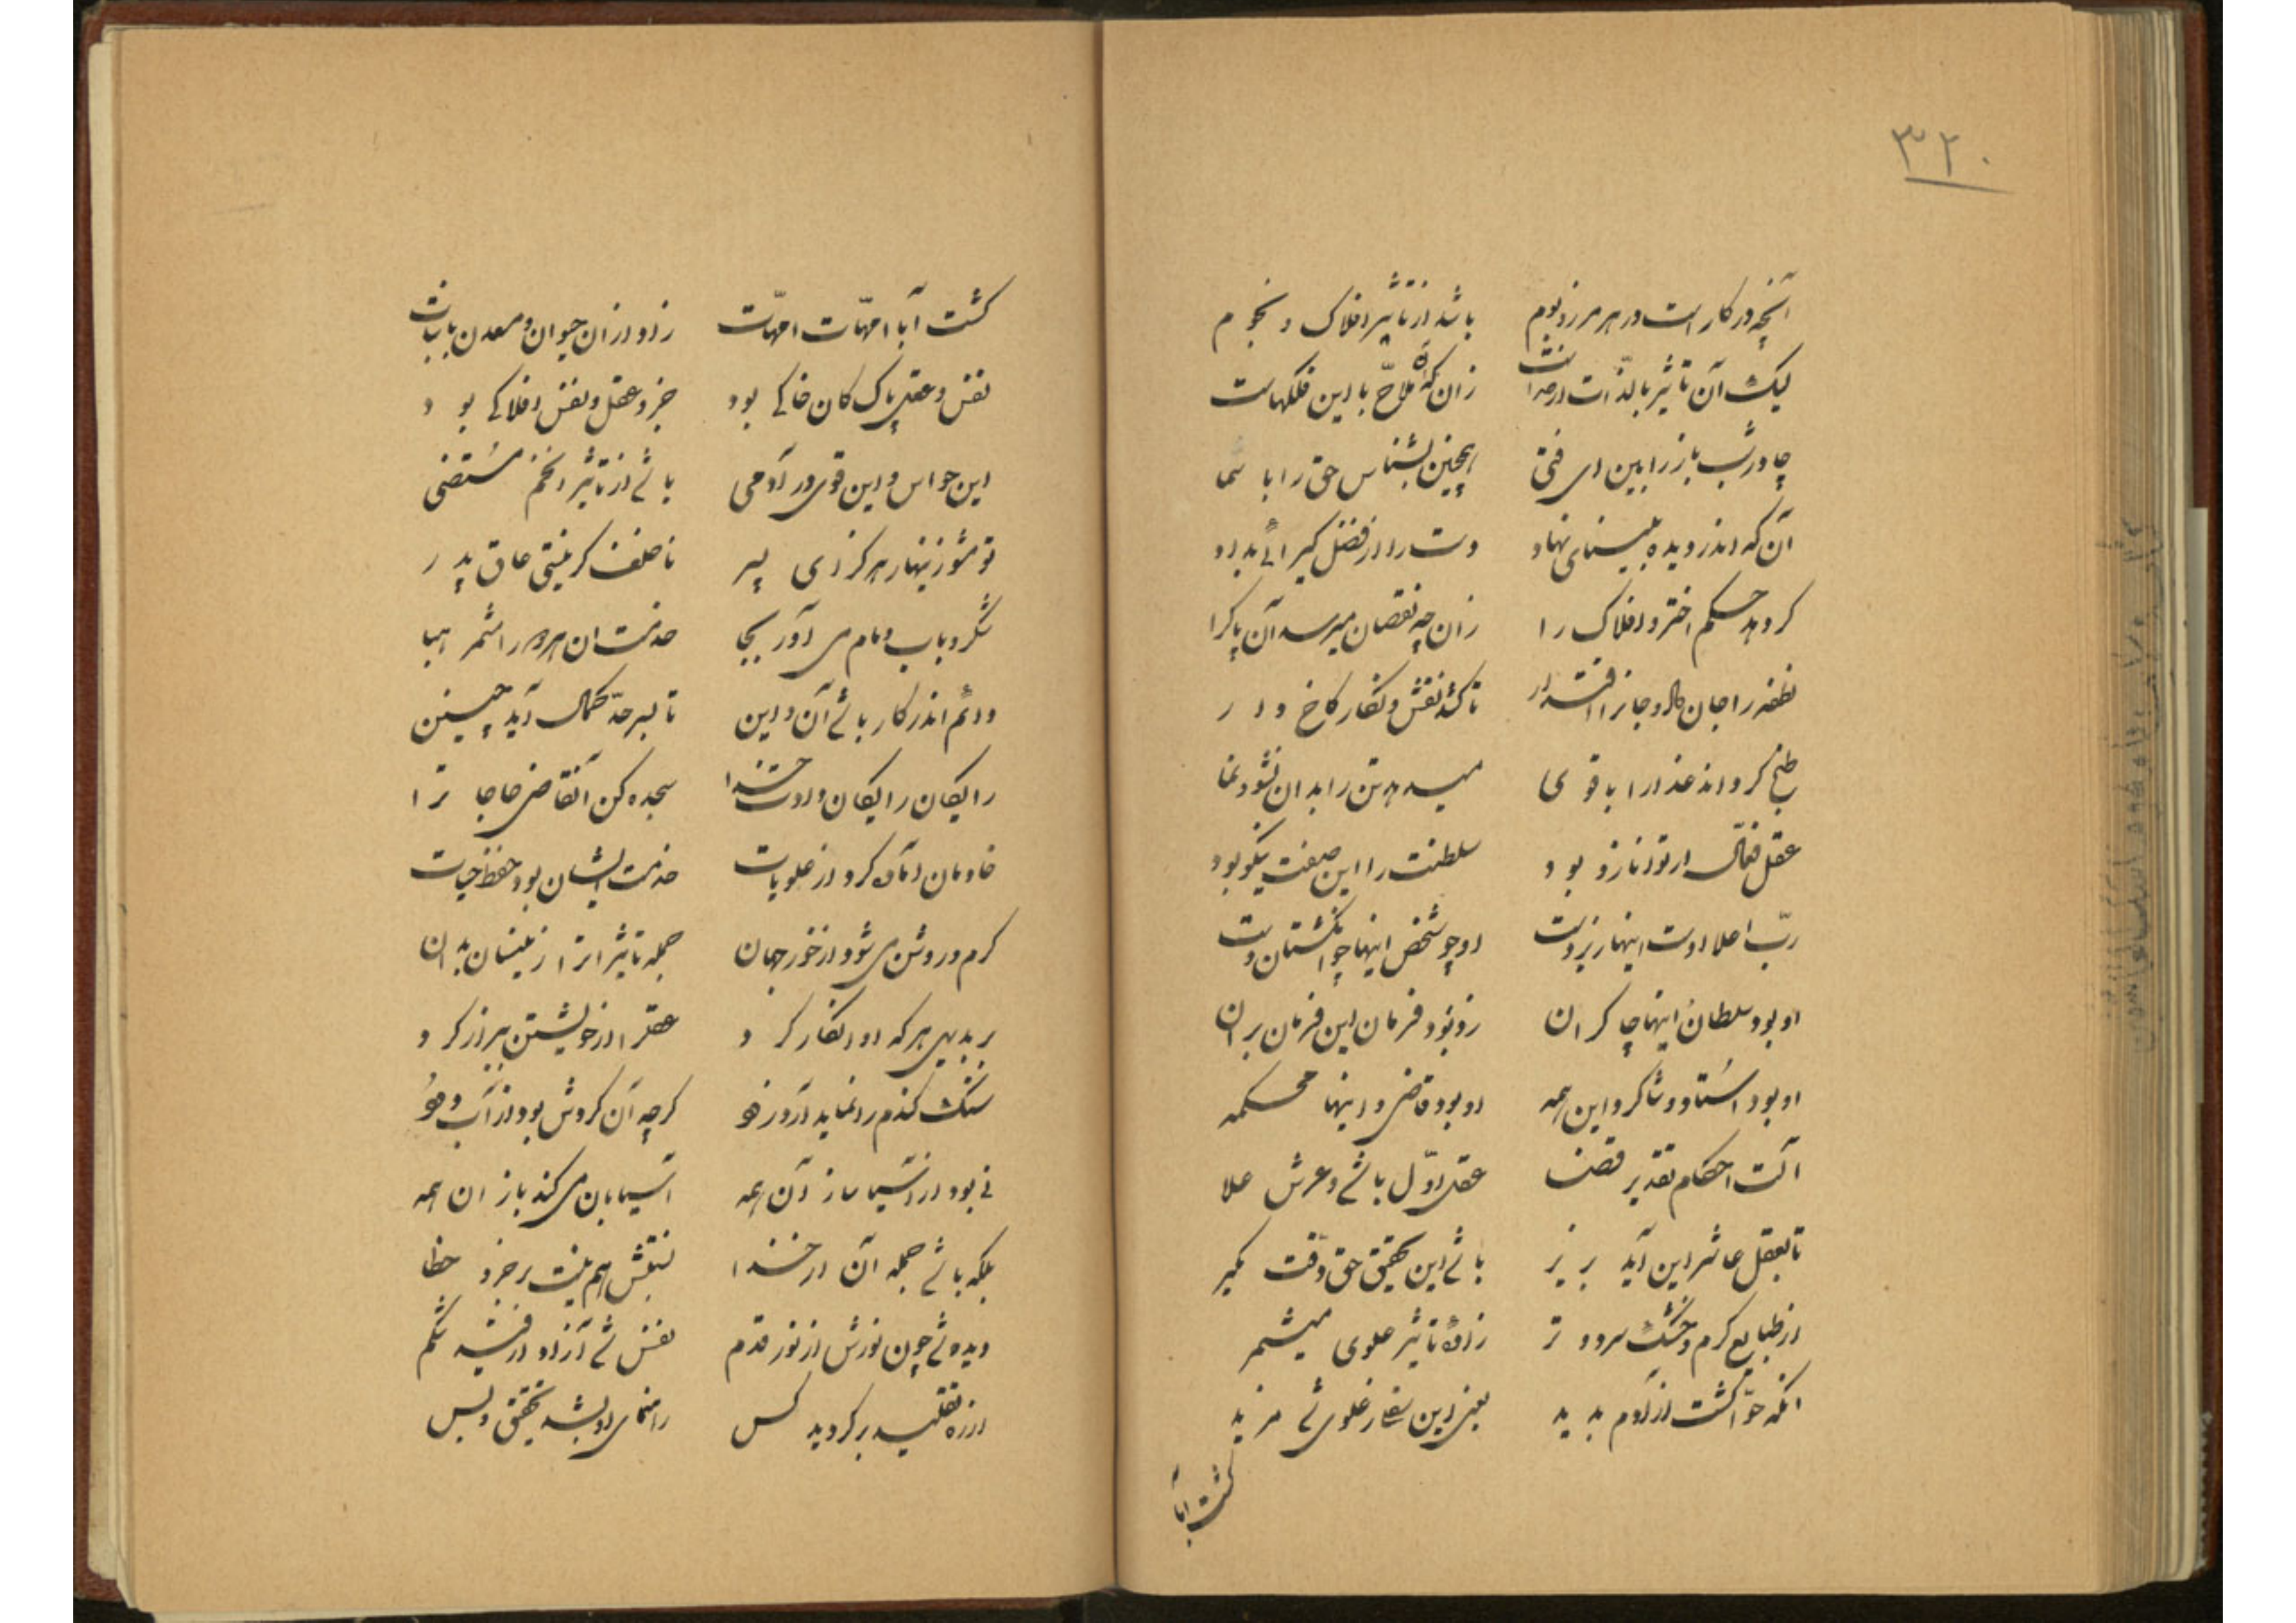 ۳۲۰
آنچه در کار است در هر مرز و بوم باشد از تاثیر افلاک و نجوم
لیک آن تاثیر بالذّات از خداست زان که ملاّح با این فلکهاست
چادر شب باز را بین ای فتی همچنین بشناس حق را با شما
آن که اندر دیده بینای نهاد دست را از فضل گیرائی بداد
کرد بد حکم اختر و افلاک را زان چه نقصان میرسد آن پاک را
نطفه را جان داد و جانرا اقتدار تا کشد نقش و نگار کاخ و دار
طبخ کرد اند غذا را با قوی میدهد تن را بدان نشو و نما
عقل فعّال ار توانا زو بود سلطنت را این صفت نیکو بود
ربّ اعلا اوست اینها زیردست او چو شخص اینها چو انگشتان دست
او بود سلطان اینها چاکران زو بود فرمان این فرمان بران
او بود استاد و شاگرد این همه او بود قاضی و اینها محکمه
آلت احکام تقدیر قضا عقل اوّل باشد و عرش علا
تا بعقل عاشر این آید بزیر باشد این تحقیق حق دقّت بگیر
از طبایع گرم و خشک و سرد و تر زادهٔ تاثیر علوی میشمر
آنکه حوّا گشت از آدم پدید یعنی این سفل از علوی شد مزید
گشت آبا
گشت آبا امّهات امّهات زاد از آن حیوان و معدن با نبات
نفس و عقل پاک کان خاکی بود جزو عقل و نفس افلاکی بود
این حواس و این قوی در آدمی باشد از تاثیر انجم مستضی
تو مشو زینهار هرگز ای پسر ناخلف گر نیستی عاق پدر
شکر و باب و مام می آور بجا خدمت آن هر دو را مشمر هبا
دائم اندر کار باشد آن و این تا بسر حدّ کمال آید چنین
رایگان را رایگان دادت خدا سجده کن آن قاضی حاجات را
خادمان آماده کرد از علویات خدمت ایشان بود حفظ حیات
گرم و روشن می شود از خور جهان جمله تاثیرات را زینسان بدان
بر بدیهی هر که او انکار کرد عقل را از خویشتن بیزار کرد
سنگ گندم را نماید آرد زو گرچه آن گردش بود از آب و هو
نی بود از آسیا ساز آن همه آسیابان می کند باز آن همه
بلکه باشد جمله آن از خدا نسبتش هم نیست بر جزو خطا
دیده شد چون نورش از نور قدم نفس شد آزاد از قید شکم
از ره تقلید برگردید کس راهنمای او بشد تحقیق و بس